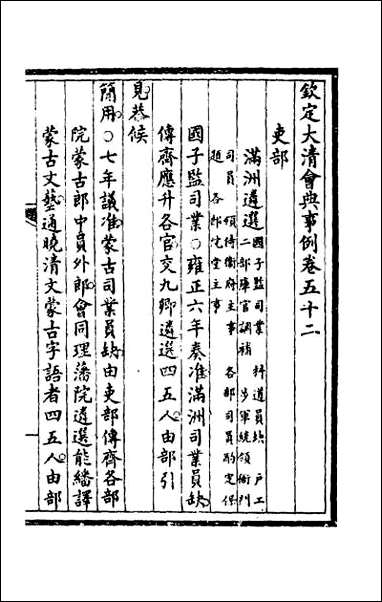 欽定大清會典事例卷五十二
吏部
滿洲遴選國子監司業 科道員缺 戶工
二部庫官調補 步軍統領衙門
司員 領侍衞府主事 各部司員酌定保
題 各部院堂主事
國子監司業○雍正六年奏准滿洲司業員缺
傳齊應升各官交九卿遴選四五人由部引
見恭候
簡用○七年議准蒙古司業員缺由吏部傳齊各部
院蒙古郎中員外郎會同理藩院遴選能繙譯
蒙古文藝通曉清文蒙古字語者四五人由部